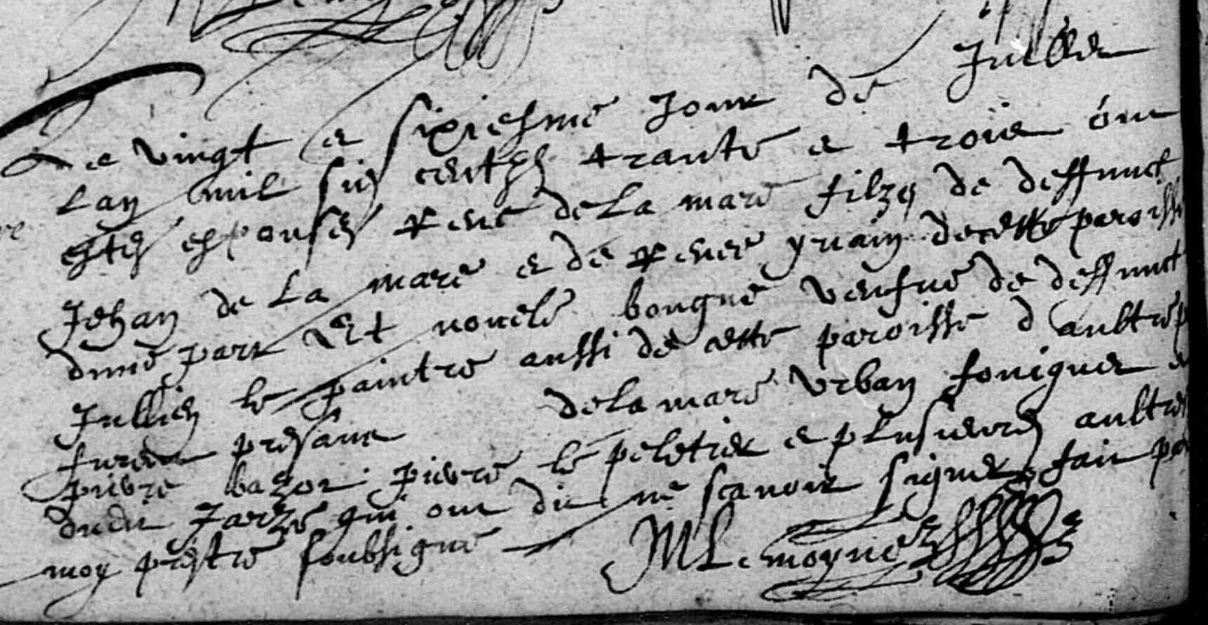 Le vingt e sixiesme Jour de Juillet
Lan mil six centz trante e trois ont
estez espousez René dela mare filz de deffunct
Jehan de La mare e de Renee yvain decette paroisse
dune part Et novele bougue veufve de deffunct
Jullien le paintre aussi de cette paroisse d aultre p
furent presant dela mare Urban fouiguer e
pierre bazoi pierre le peletier e plusieurs aultres
dudit Jarzé qui ont dit ne scavoir signer fait par
moy prestre soubsigné
MLemoyne